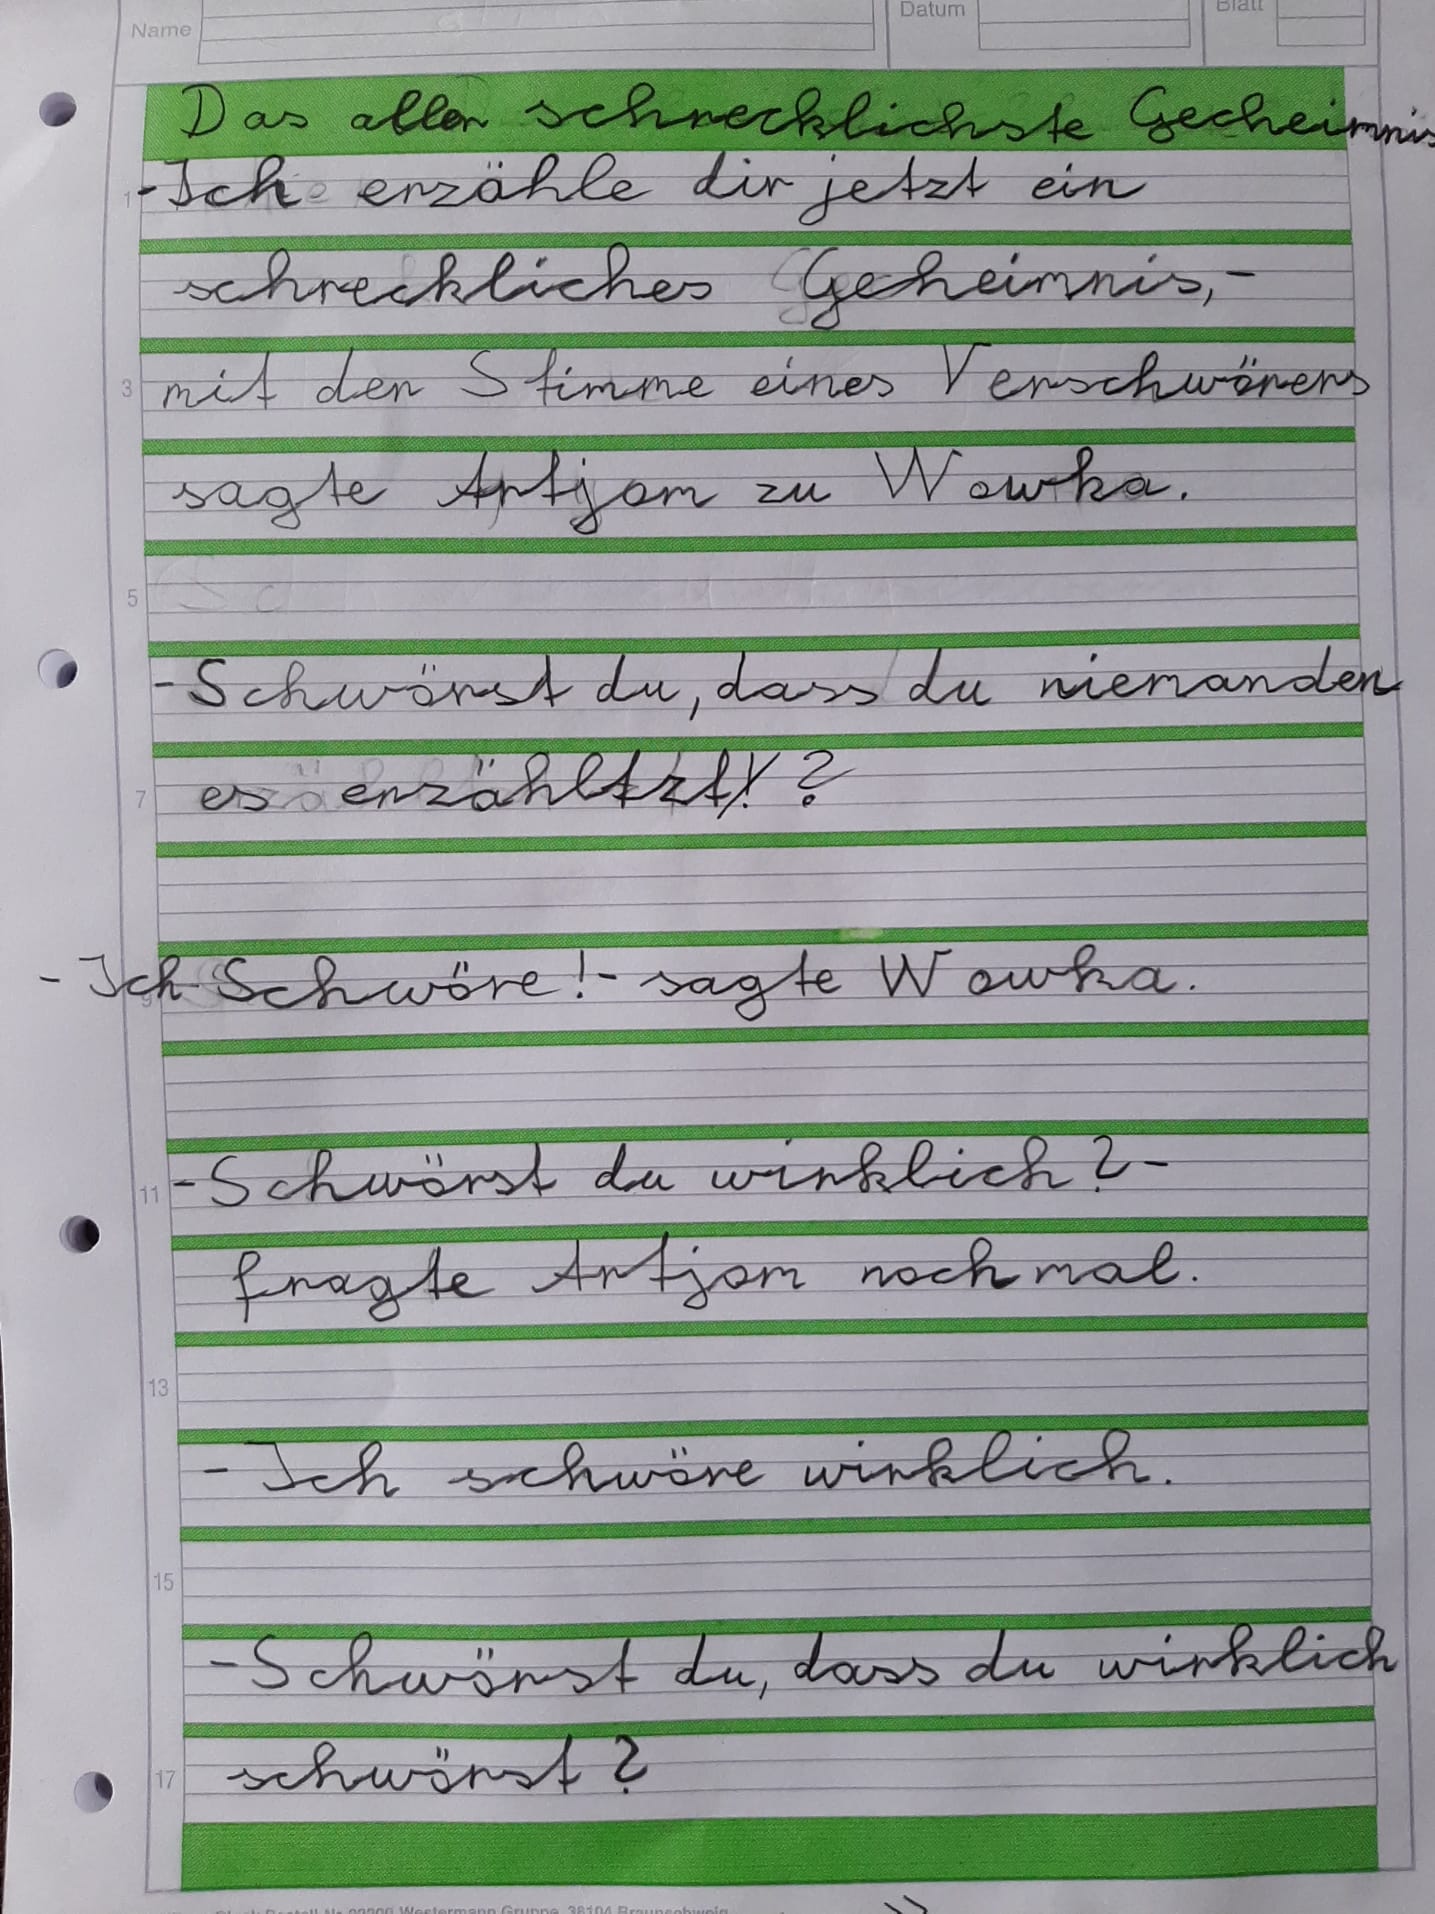 Name
Datum
Blatt
Das aller schrecklichste Gecheimnis
1 -Ich erzähle dir jetzt ein
schreckliches Geheimnis,-
3 mit der Stimme eines Verschwörers
sagte Artjom zu Wowka.
5
-Schwörst du, dass du niemanden
7 es erzähltzt!?
9 -Ich Schwöre!- sagte Wowka.
11 -Schwörst du wirklich?-
fragte Artjom nochmal.
13
-Ich schwöre wirklich.
15
-Schwörst du, dass du wirklich
17 schwörst?
Westermann Gruppe, 38104 Braunschweig